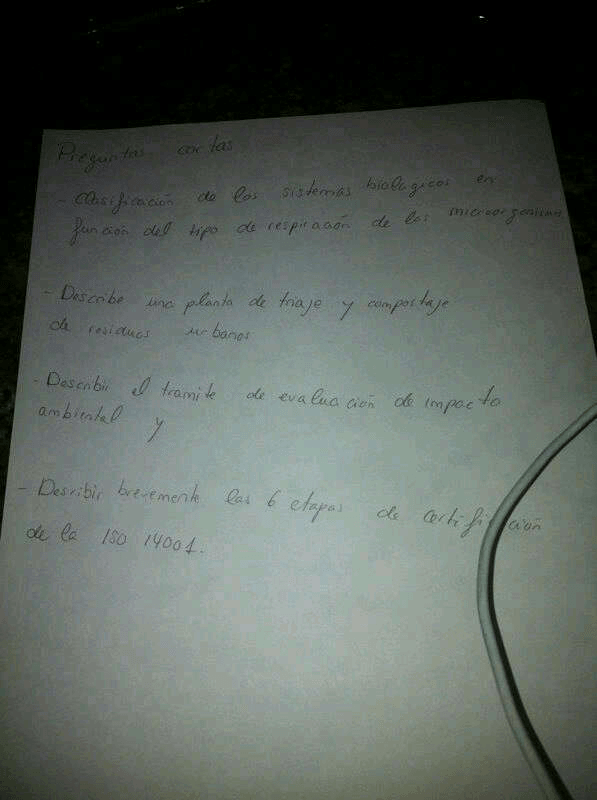 Preguntas cortas
- Clasificación de los sistemas biologicos en
función del tipo de respiración de los microorganismos
- Describe una planta de triaje y compostaje
de residuos urbanos
- Describir el tramite de evaluación de impacto
ambiental y
- Describir brevemente las 6 etapas de certificación
de la ISO 14001.